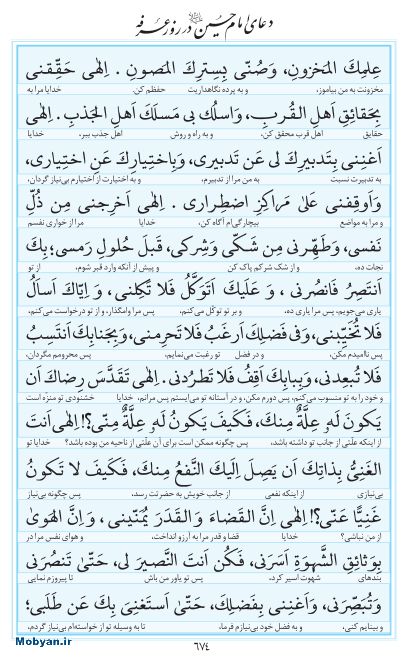 دعای امام حسین در روز عرفه
عِلمِكَ المَخزونِ، وَصُنّی بِسِترِكَ المَصونِ . اِلٰهی حَقِّقنی
مخزونت به من بیاموز، و به پرده نگاهداریت حفظم کن. خدایا مرا به
بِحَقائِقِ اَهلِ القُربِ، وَاسلُك بی مَسلَكَ اَهلِ الجَذبِ. اِلٰهی
حقایق اهل قرب محقق کن، و به راه و روش اهل جذب ببر. خدایا
اَغنِنی بِتَدبیرِكَ لی عَن تَدبیری، وَبِاختِیارِكَ عَنِ اختِیاری،
به تدبیرت نسبت به من مرا از تدبیرم، و به اختیارت از اختیارم بی‌نیاز گردان،
وَاَوقِفنی عَلیٰ مَراکِزِ اضطِراری . اِلٰهی اَخرِجنی مِن ذُلِّ
و مرا به مواضع بیچارگی‌ام آگاه کن. خدایا مرا از خواری نفسم
نَفسی، وَطَهِّرنی مِن شَكّی وَشِرکی، قَبلَ حُلولِ رَمسی؛ بِكَ
نجات ده، و از شک و شرکم پاک کن و پیش از آنکه وارد قبر شوم، از تو
اَنتَصِرُ فَانصُرنی ، وَ عَلَیكَ اَتَوَکَّلُ فَلا تَکِلنی ، وَ اِیّاكَ اَسأَلُ
یاری می‌جویم، پس مرا یاری ده، و بر تو توکّل می‌کنم، پس مرا وامگذار، و از تو درخواست می‌کنم،
فَلا تُخَیِّبنی، وَ فی فَضلِكَ اَرغَبُ فَلا تَحرِمنی، وَبِجَنابِكَ اَنتَسِبُ
پس ناامیدم مکن، و در فضل تو رغبت می‌نمایم، پس محرومم مگردان،
فَلا تُبعِدنی، وَبِبابِكَ اَقِفُ فَلا تَطرُدنی. اِلٰهی تَقَدَّسَ رِضاكَ اَن
و خود را به تو منسوب می‌کنم، پس دورم مکن، و در آستانه تو می‌ایستم پس مرانم، خدایا خشنودی تو منزّه است
یَکونَ لَهُ عِلَّةٌ مِنكَ، فَکَیفَ یَکونُ لَهُ عِلَّةٌ مِنّی؟! اِلٰهی اَنتَ
از اینکه علّتی از جانب تو داشته باشد، پس چگونه ممکن است برای آن علّتی از ناحیه من بوده باشد؟ خدایا تو
الغَنِیُّ بِذاتِكَ اَن یَصِلَ اِلَیكَ النَّفعُ مِنكَ، فَکَیفَ لا تَکونُ
بی‌نیازی از اینکه نفعی از جانب خویش به حضرتت رسد، پس چگونه بی‌نیاز
غَنِیّاً عَنّی؟! اِلٰهی اِنَّ القَضاءَ وَالقَدَرَ یُمَنّینی ، وَاِنَّ الهَویٰ
از من نباشی؟ خدایا قضا و قدر مرا به آرزو انداخت، و هوای نفس مرا در
بِوَثائِقِ الشَّهوَةِ اَسَرَنی، فَکُن اَنتَ النَّصیرَ لی، حَتّیٰ تَنصُرَنی
بندهای شهوت اسیر کرد، پس تو یاور من باش تا پیروزم نمایی
وَتُبَصِّرَنی، وَاَغنِنی بِفَضلِكَ، حَتّیٰ اَستَغنِیَ بِكَ عَن طَلَبی؛
و بینایم کنی، و به فضل خود بی‌نیازم فرما، تا به وسیله تو از خواسته‌ام بی‌نیاز گردم.
٦٧٤
Mobyan.ir